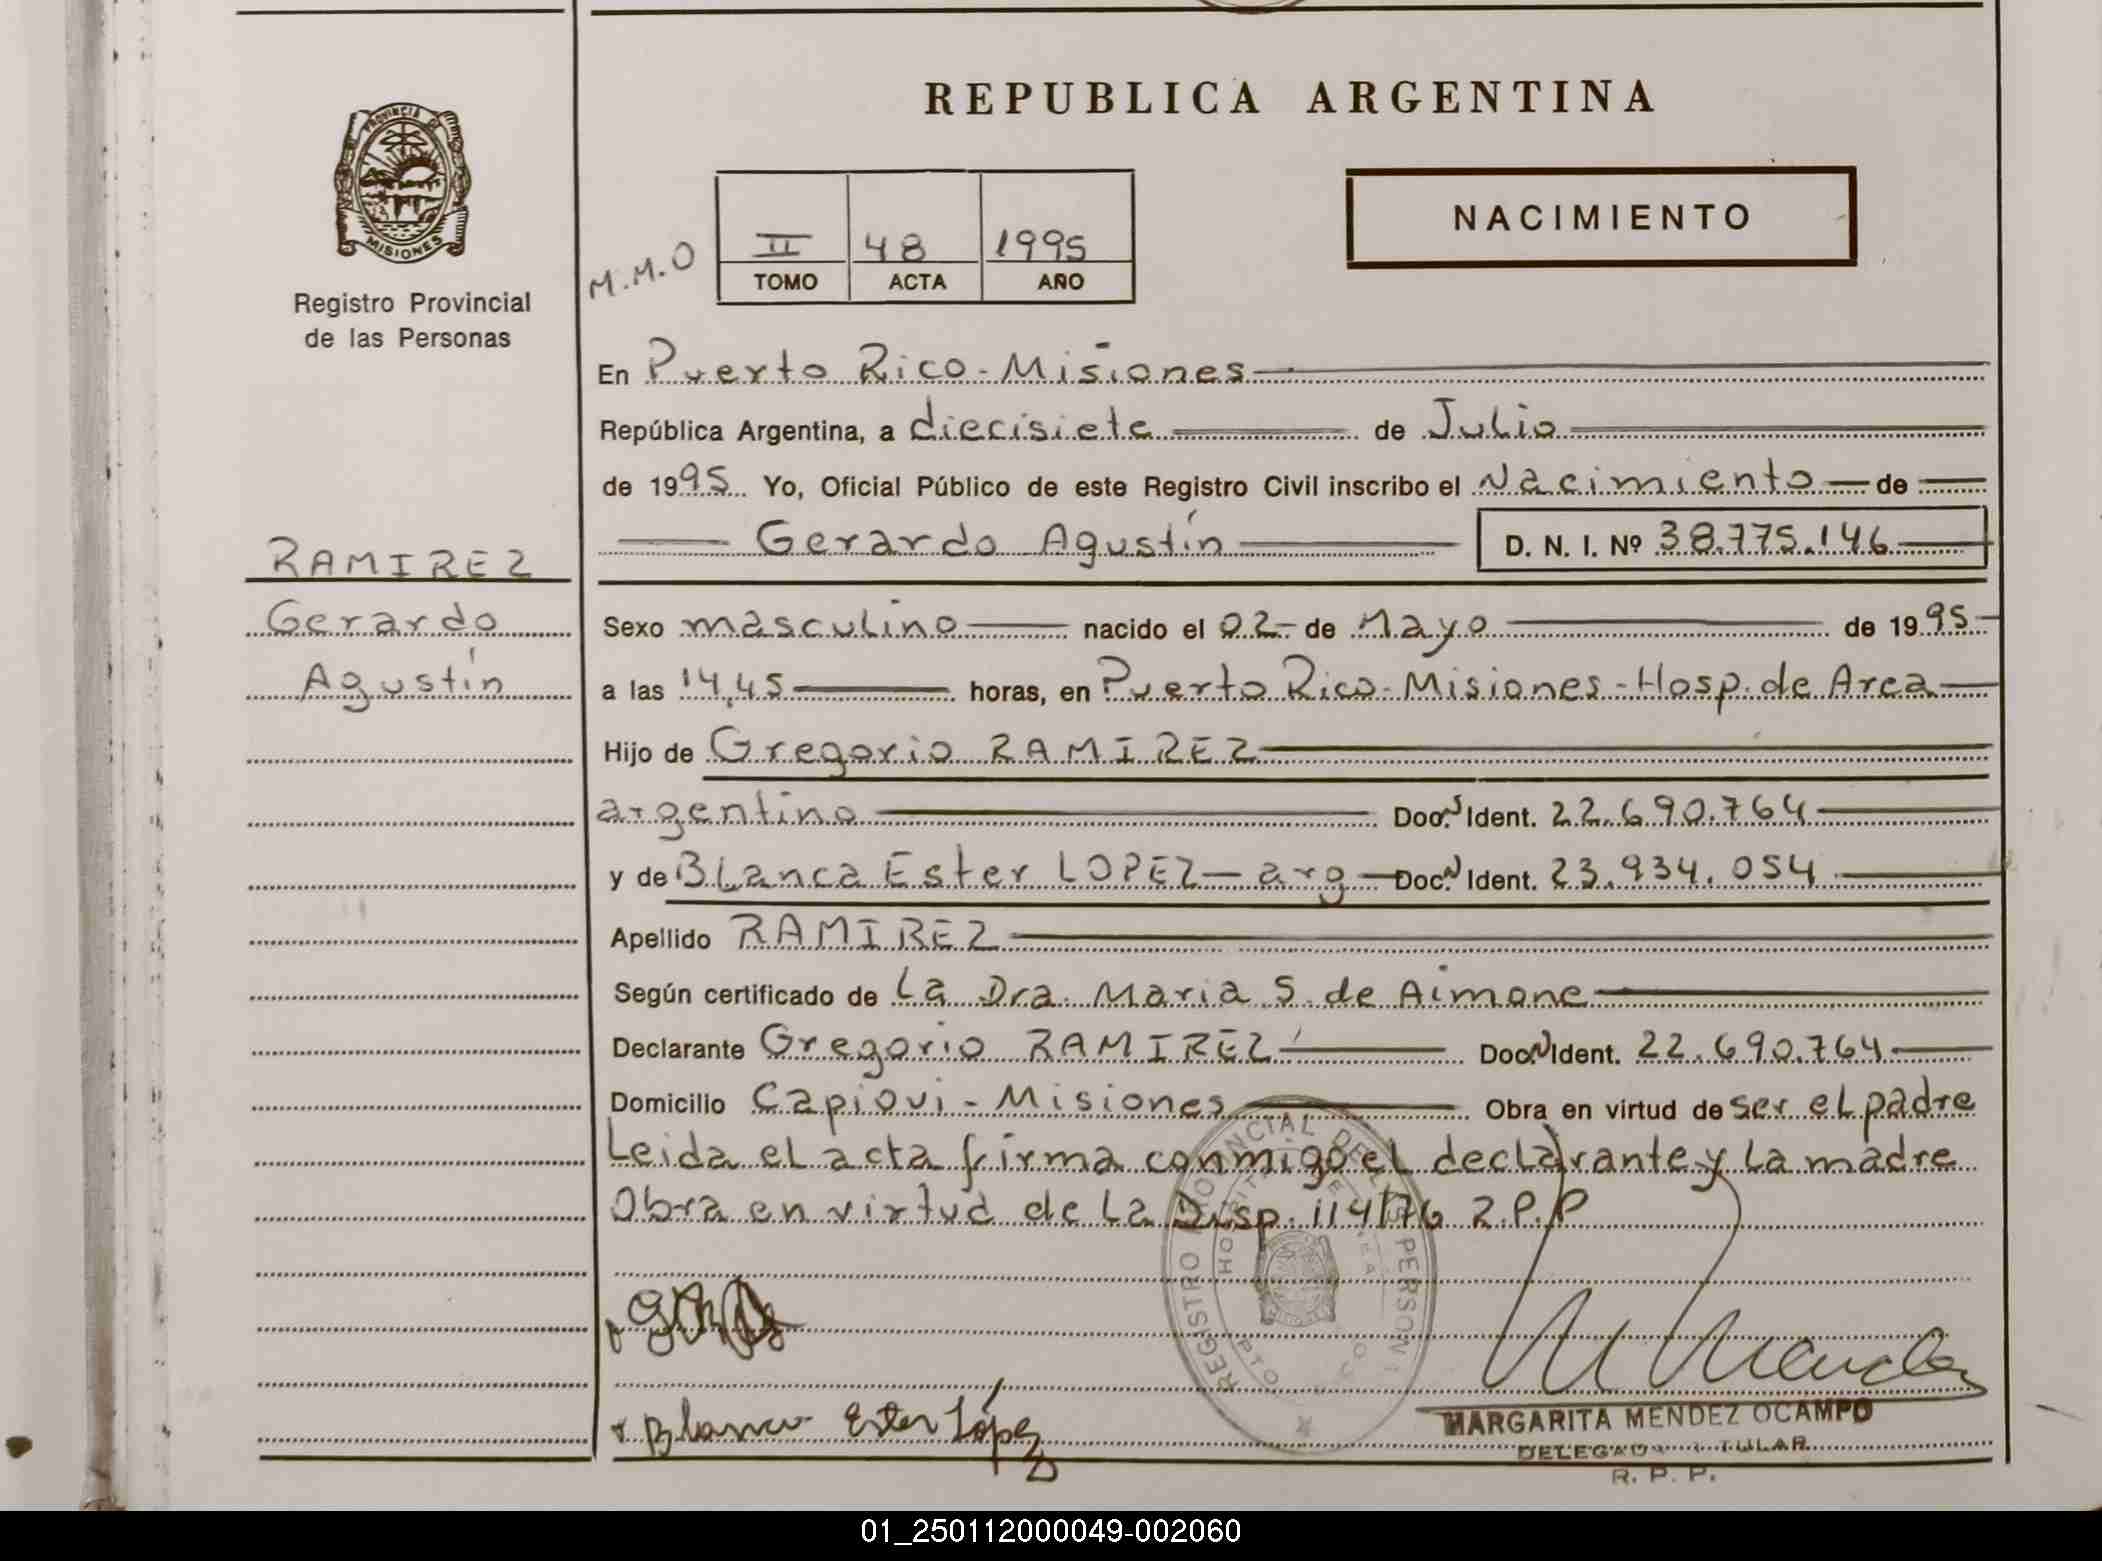 REPUBLICA ARGENTINA
PROVINCIA DE
MISIONES
Registro Provincial
de las Personas
NACIMIENTO
M.M.O
II 48 1995
TOMO ACTA AÑO
En Puerto Rico - Misiones
República Argentina, a diecisiete de Julio
de 1995 Yo, Oficial Público de este Registro Civil inscribo el Nacimiento de
Gerardo Agustín D. N. I. Nº 38.775.146
RAMIREZ
Gerardo
Agustín
Sexo masculino nacido el 02 de Mayo de 1995
a las 14,45 horas, en Puerto Rico - Misiones - Hosp. de Area
Hijo de Gregorio RAMIREZ
argentino Doc. Ident. 22.690.764
y de Blanca Ester LOPEZ - arg - Doc. Ident. 23.934.054
Apellido RAMIREZ
Según certificado de La Dra. Maria S. de Aimone
Declarante Gregorio RAMIREZ Doc. Ident. 22.690.764
Domicilio Capiovi - Misiones Obra en virtud de ser el padre
Leida el acta firma conmigo el declarante y la madre
Obra en virtud de la Disp. 114/76 R.P.P
REGISTRO PROVINCIAL DE LAS PERSON
Blanca Ester López
MARGARITA MENDEZ OCAMPO
DELEGADA TITULAR
R. P. P.
01_250112000049-002060